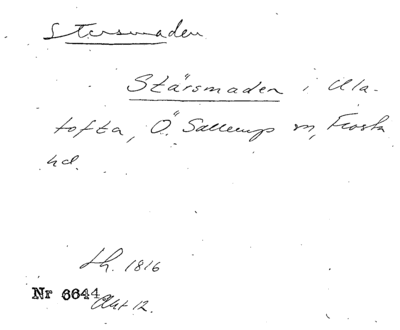 Stersmaden
Stärsmaden i Ula-
tofta, Ö. Sallerup sn, Frosta
hd.
Lh. 1816
Nr 6644 Akt 12.